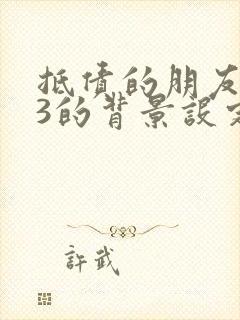 抵债的朋友
3的背景設定
許武